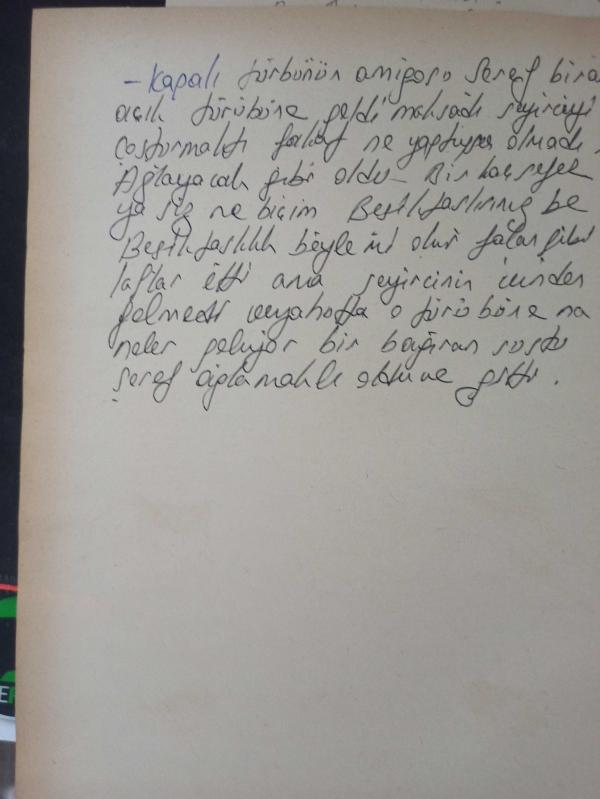 - Kapalı türbünün amigosu Şeref bira
açık türübüne geldi maksadı seyirciyi
coşturmaktı fakat ne yaptıysa olmadı.
Ağlayacak gibi oldu - Bir kaç sefer
ya siz ne biçim Beşiktaşlısınız be
Beşiktaşlılık böyle mi olur falan gibi
laflar etti ama seyircinin içinden
gelmedi veyahutta o türübüne na
neler geliyor bir bağıran sustu
Şeref ağlamaklı oldu ve gitti.